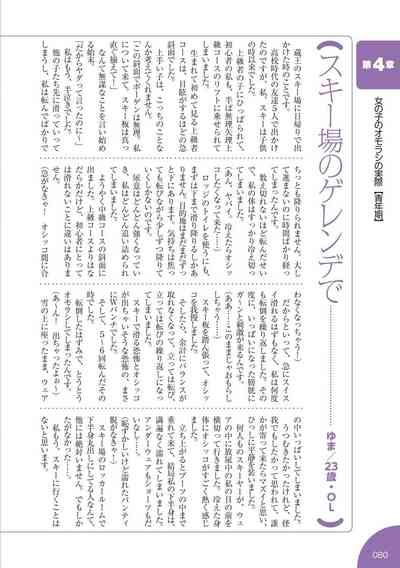 第4章
女の子のオモラシの実際【青年期】
スキー場のゲレンデで
ゆま/23歳・OL
蔵王のスキー場に日帰りで出
かけた時のことです。
高校時代の友達5人で出か
けたのですが、私、スキーは子供
の時以来でした。
上級者の子にひっぱられて、
初心者の私も、半ば無理矢理上
級コースのリフトに乗せられて
しまいました。
生まれて初めて見る上級者
コースは、目眩がするほどの急
斜面でした。
上手い子は、こっちのことな
んか考えてくれません。
「この斜面でボーゲンは無理。私
についてきて、スキー板は真っ
直ぐ揃えて」
なんて無謀なことを言い始め
る始末。
(だからヤダって言ったのに~)
私はもう、半泣きでした。
他の子たち先に滑っていって
しまうし、私は転んでばかりで
ちっとも降りられません。大し
て進まないのに時間ばかり経っ
てしまったんです。
数え切れないほど転んだせい
で、私の体はすっかり冷え切っ
てしまいました。
(あん、ヤバイ。冷えたらオシッ
コしたくなって来た…)
ロッジのトイレを使うにも、
まずは下まで滑り降りるしかあ
りません。目的地はまだまだずっ
と下にあります。気持ちは焦っ
ても転びながら少しずつ降りて
いくしかないのです。
尿意はどんどん強くなってい
き、私はどんどん追い詰められ
てしまいました。
ようやく中級コースの斜面に
出ました。上級コースよりはな
だらかだけど、初心者にとって
は滑れないことに違いはありま
せん。
(急がなきゃ! オシッコ間に合
わなくなっちゃう~)
だからといって、急にスイス
イ滑れるはずもなく、私は何度
も転倒を繰り返しました。その
度に、いっぱいになった膀胱に
ガーンと刺激が来るんです。
(ああ…このままじゃおもらし
しちゃう……)
スキー板を踏ん張って、オシッ
コを我慢しました。
そしたら、余計にバランスが
取れなくなって、立っては転び、
立っては転びの繰り返しになっ
てしまいました。
スキーで滑る恐怖とオシッコ
が出ちゃいそうな恐怖の、まさ
にWパンチでした。
そして、5~6回転んだその
時でした。
転倒したはずみで、とうとう
オモラシしてしまったんです。
(あ~ん! 出ちゃったよぉ~)
雪の上に座ったまま、ウェア
の中いっぱいしてしまいました。
うつむきだったけれど、怪
我でもしたかって思われて、誰
かが寄って来たらマズイと思い、
ひっしに平静を装いました。
何人ものスキーヤーが、ウェ
アの中に放尿中の私の目の前を
横切って行きました。冷えた身
体にオシッコがすごく熱く感じ
ました。
立ち上がるとブーツの中まで
垂れて来て、結局私の下半身は
満遍なく濡れてしまいました。
アンダーウェアもショーツもだ
いなし…。
(恥ずかしいけど濡れたパンテ
脱がなきゃ~)
スキー場のロッカールームで
下半身丸出しにしてる人なんて、
他には絶対いません。でもしか
たがなかった…。
私もう、スキーに行くことは
ないと思います。
080